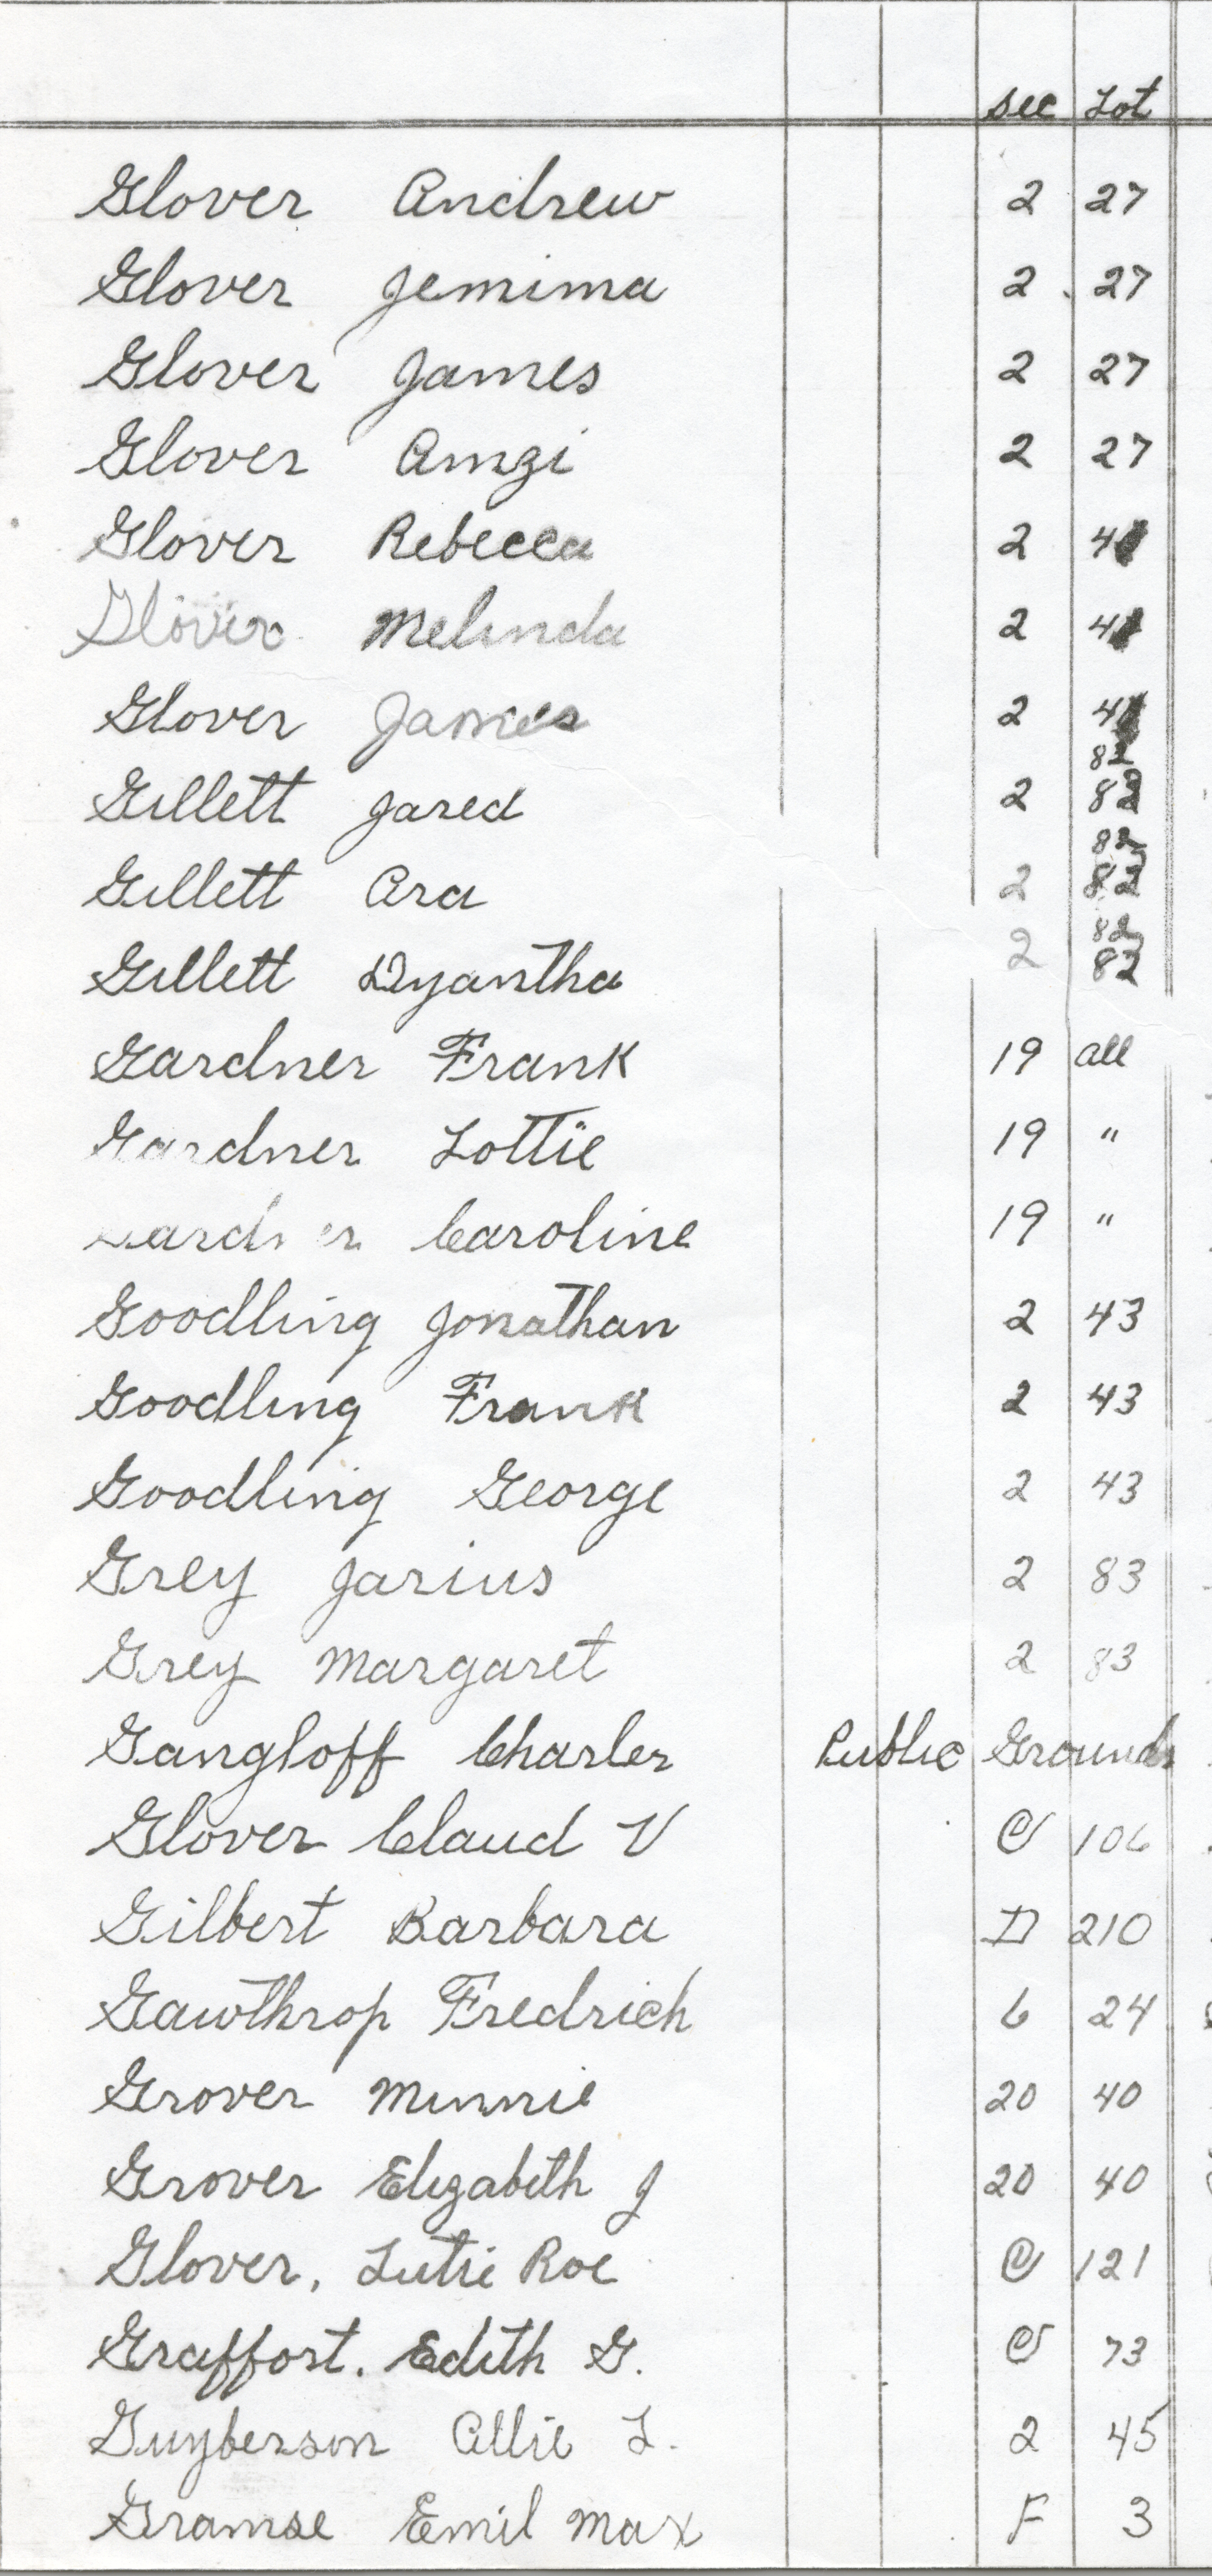 Sec Lot
Glover Andrew 2 27
Glover Jemima 2 27
Glover James 2 27
Glover Amzi 2 27
Glover Rebecca 2
Glover Melinda 2
Glover James 2
82
Gillett Jared 2 82
82
Gillett Ara 2 82
82
Gillett Dyantha 2 82
Gardner Frank 19 all
Gardner Lottie 19 "
Gardner Caroline 19 "
Goodling Jonathan 2 43
Goodling Frank 2 43
Goodling George 2 43
Grey Jarius 2 83
Grey Margaret 2 83
Gangloff Charles Public Grounds
Glover Claud V C 106
Gilbert Barbara D 210
Gawthrop Fredrich 6 24
Grover Minnie 20 40
Grover Elizabeth J 20 40
Glover, Lutie Roe C 121
Graffort. Edith G. C 73
Guyberson Allie L. 2 45
Gramse Emil Max F 3